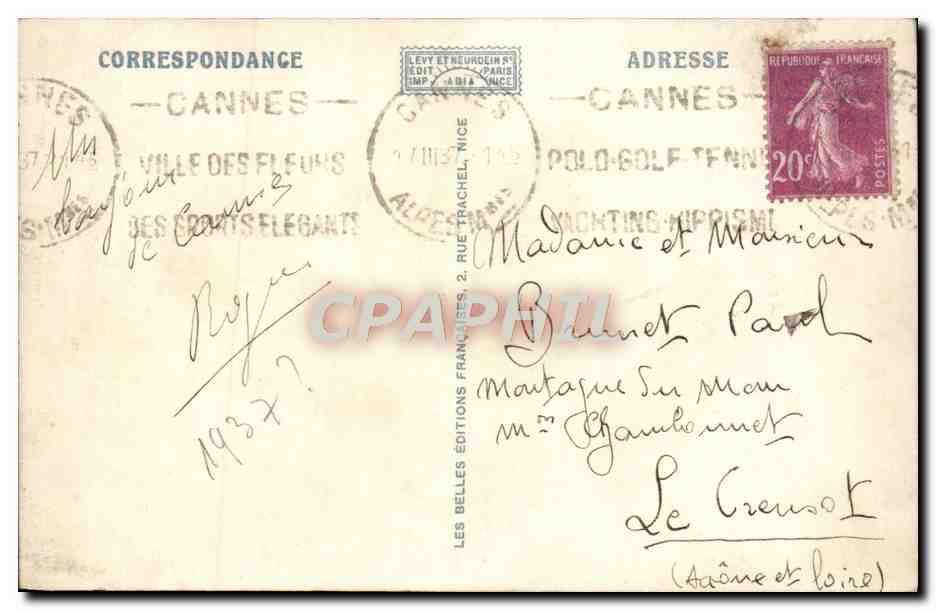 CORRESPONDANCE
LEVY ET NEURDEIN Rs
EDIT PARIS
IMP ADIA NICE
ADRESSE
REPUBLIQUE FRANCAISE
20c
POSTES
CANNES
VILLE DES FLEURS
DES SPORTS ELEGANTS
CANNES
ALPES MMES
CANNES
POLO-GOLF-TENNIS
YACHTING-HIPPISME
Un
bonjour
de Cannes
Roger
1937?
LES BELLES ÉDITIONS FRANÇAISES, 2, RUE TRACHEL, NICE
Madame et Monsieur
Paul
Montagne du
Mon Chambonnet
Le Creusot
(Saône et Loire)
CPAPHIL